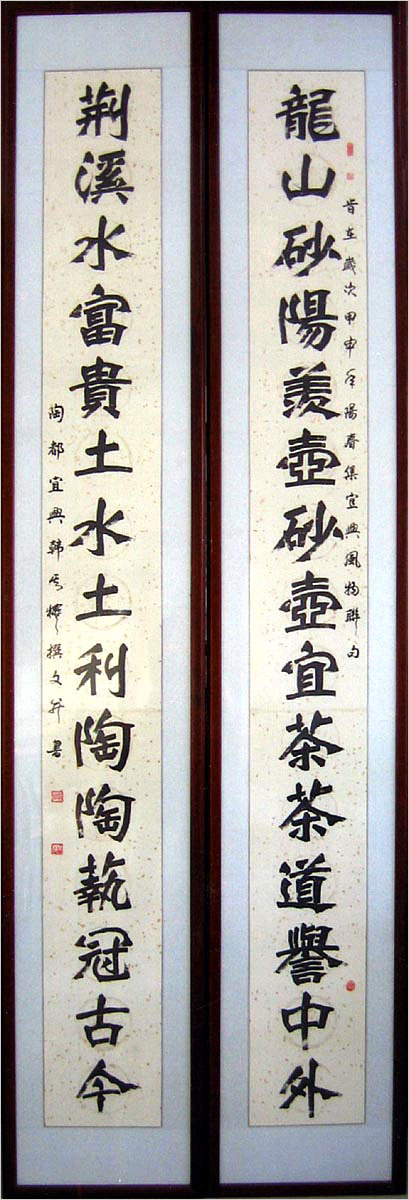 龍山砂陽羨壺砂壺宜茶茶道譽中外
旹在歲次甲申陽春集宜興風物聯句
荆溪水富貴土水土利陶陶埶冠古今
陶都宜興韓撰文并書